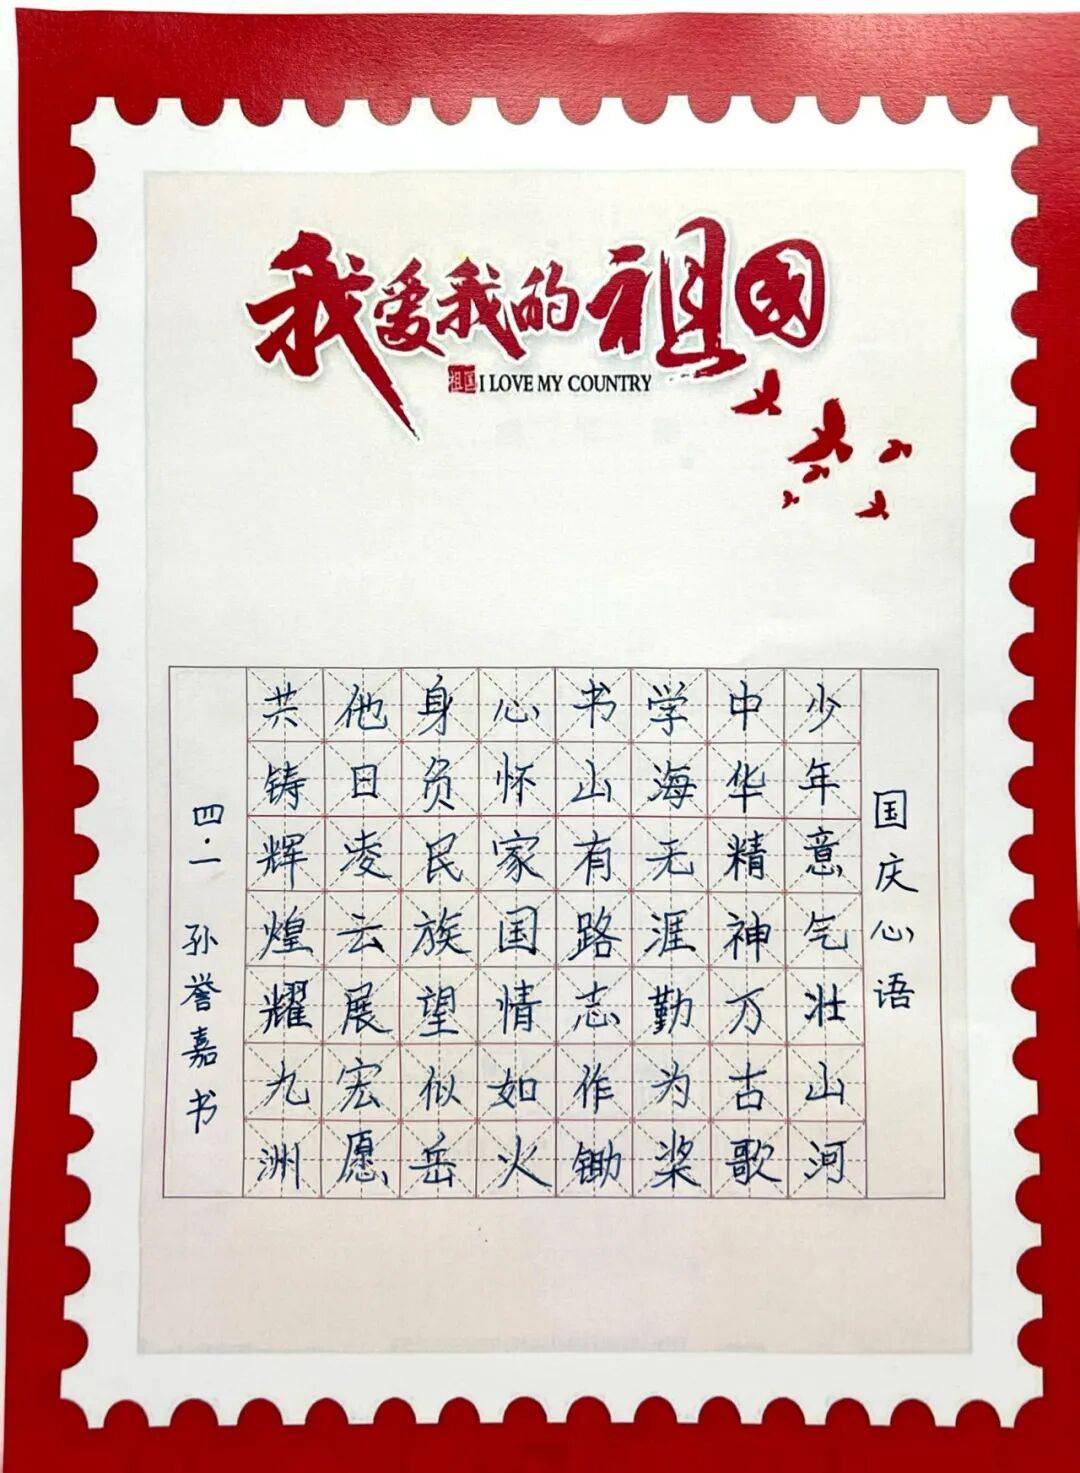 我爱我的祖国
祖国 I LOVE MY COUNTRY
国庆心语
少年意气壮山河
中华精神万古歌
学海无涯勤为桨
书山有路志作锄
心怀家国情如火
身负民族望似岳
他日凌云展宏愿
共铸辉煌耀九洲
四.一 孙誉嘉书